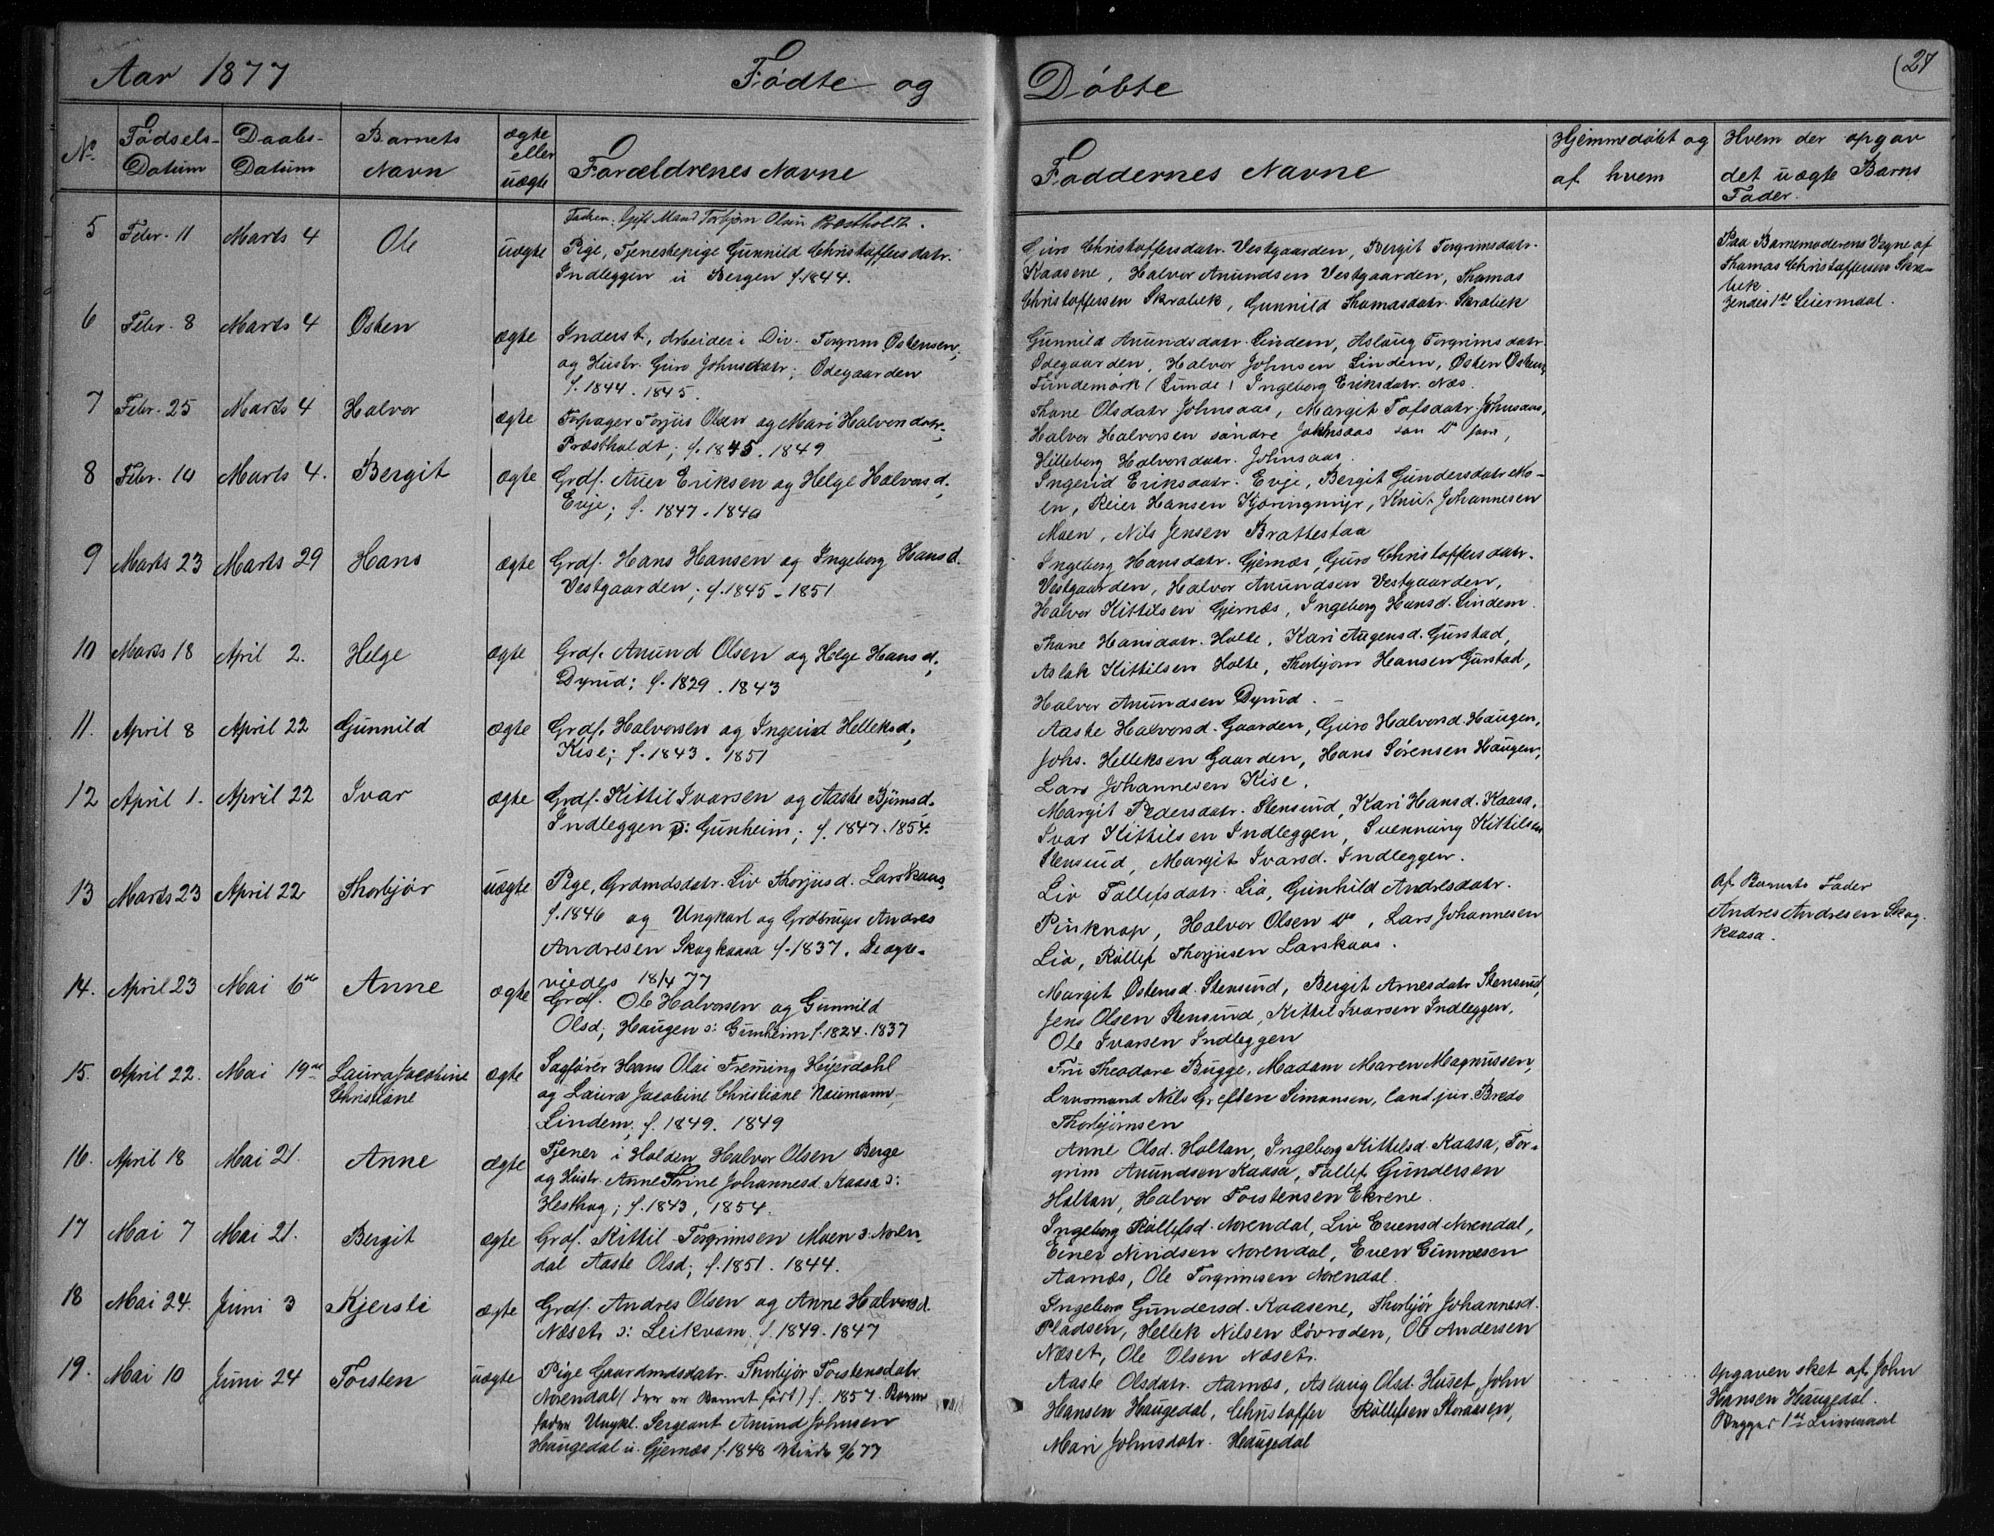 Aar 1877
Fødte og
Døbte
(27
No.
Fødsels-
Datum
Daabs-
Datum
Barnets
Navn
ægte
eller
uægte
Forældrenes Navne
Faddernes Navne
Hjemmedøbt og
af hvem
Hvem der opgav
det uægte Barns
Fader.
5 Febr. 11 Marts 4 Ole uægte
Faderen: Gift Mand Torbjørn Olsen Præstholdt.
Pige, Tjenestepige Gunnild Christoffersdatr.
Indleggen u Bergen f. 1844.
Guro Christoffersdatr. Vestgaarden, Bergit Torgrimsdatr.
Kaasene, Halvor Anundsen Vestgaarden, Thomas
Christoffersen Skrabek, Gunnild Thomasdatr. Skrabek
Paa Barnemoderens Vegne af
Thomas Christoffersen Skra-
bek.
1ste Leiermaal.
6 Febr. 8 Marts 4 Østen ægte
Inderst, Arbeider i Div. Torgrim Østensen,
og Hustr. Guro Johnsdatr; Ødegaarden
f. 1844. 1845.
Gunnild Anundsdatr. Lindem, Aslaug Torgrimsdatr.
Ødegaarden, Halvor Johnsen Lindem, Østen Østens.
(Lunde) Ingeborg Eriksdatr. Næs.
7 Febr. 25 Marts 4 Halvor ægte
Forpagter Torjus Olsen og Mari Halvorsdatr;
Præstholdt; f. 1845. 1849
Thone Olsdatr Johnsaas, Margit Tofsdatr Johnsaas,
Halvor Halvorsen søndre Johnsaas
Hilleborg Halvorsdatr. Johnsaas.
8 Febr. 10 Marts 4. Bergit ægte
Grdf. Auen Eriksen og Helge Halvorsd,
Evje; f. 1847. 1840
Ingerid Eriksdatr. Evje, Bergit Gundersdatr Mo-
en, Reier Hansen Kjøringmyr, Knut Johannesen
Moen, Nils Jensen Brattestaa
9 Marts 23 Marts 29 Hans ægte
Grdf. Hans Hansen og Ingeborg Hansd.
Vestgaarden; f. 1845 - 1851
Ingeborg Hansdatr. Gjernæs, Guro Christoffersdatr.
Vestgaarden, Halvor Anundsen Vestgaarden,
Halvor Kittilsen Gjernæs, Ingeborg Hansd. Lindem.
10 Marts 18 April 2. Helge ægte
Grdf. Anund Olsen og Helge Hansd,
Dyrud; f. 1829. 1843
Thone Hansdatr. Holte, Kari Augensd. Gurstad,
Aslak Kittilsen Holte, Thorbjørn Hansen Gurstad,
Halvor Anundsen Dyrud.
11. April 8 April 22 Gunnild ægte
Grdf. Halvorsen og Ingerid Helleksd;
Kise; f. 1843. 1851
Aaste Halvorsd. Gaarden, Guro Halvorsd. Haugen,
Johs. Helleksen Gaarden, Hans Sørensen Haugen,
Lars Johannesen Kise.
12 April 1. April 22 Ivar ægte
Grdf. Kittil Ivarsen og Aaste Bjørnsd.
Indleggen o: Gunheim; f. 1847. 1854.
Margit Pedersdatr. Stensund, Kari Hansd. Kaasa,
Ivar Kittilsen Indleggen, Svennung Kittilsen
Stensund, Margit Ivarsd. Indleggen.
13 Marts 23 April 22 Thorbjør uægte
Pige, Grdmdsdatr. Liv Thorjusd. Larskaas,
f. 1846 og Ungkarl og Grdbruger Andres
Andresen Skogkaasa f. 1837. De ægte-
viedes 18/4 77
Liv Tollefsdatr. Lia, Gunhild Andresdatr.
Pinknop, Halvor Olsen Do, Lars Johannesen
Lia, Rollef Thorjusen Larskaas.
Af Barnets Fader
Andres Andresen Skog
kaasa.
14. April 23 Mai 6te Anne ægte
Grdf. Ole Halvorsen og Gunnild
Olsd; Haugen o: Gunheim f. 1824. 1837
Margit Østensd. Stensund, Bergit Arnesdatr Stensund,
Jens Olsen Stensund, Kittil Ivarsen Indleggen,
Ole Ivarsen Indleggen
15. April 22. Mai 19de Laura Jacobine ægte
Christiane
Sagfører Hans Olai Freming Heyerdahl
og Laura Jacobine Christiane Naumann,
Lindem, f. 1849. 1849
Fru Theodora Bugge, Madam Maren Magnussen,
Nils Simonsen, Cand. jur. Bredo
Thorbjørnsen
16. April 18 Mai 21. Anne ægte
Tjener i Holden, Halvor Olsen Berge
og Hustr. Anne Trine Johannesd. Kaasa o:
Hesthag; f. 1843, 1854.
Anne Olsd. Holtan, Ingeborg Kittilsd. Kaasa, Tor-
grim Anundsen Kaasa, Tollef Gundersen
Holtan, Halvor Torstensen Ekrene.
17 Mai 7 Mai 21. Bergit ægte
Grdf. Kittil Torgrimsen Moen o: Noren-
dal Aaste Olsd; f. 1851. 1844.
Ingeborg Rollefsd. Norendal, Liv Evensd Norendal,
Einer Norendal, Even Gunnesen
Aarnæs, Ole Torgrimsen Norendal.
18 Mai 24. Juni 3 Kjersti ægte
Grdf. Andres Olsen og Anne Halvorsd.
Næset o: Leikvam, f. 1849. 1847
Ingeborg Gundersd. Kaasene, Thorbjør Johannesd.
Pladsen, Hellek Nilsen Løvroden, Ole Andersen
Næset, Ole Olsen Næset.
19. Mai 10 Juni 24 Torsten uægte
Pige Gaardmdsdatr. Thorbjør Torstensdatr
Norendal (der er Barnet født) f. 1857. Barne
faderen Ungkl. Sergeant Anund Johnsen
Haugedal u. Gjernæs f. 1848 9/6 77
Aaste Olsdatr. Aarnæs, Aslaug Olsd. Huset, John
Hansen Haugedal, Christoffer Rollefsen Storaasen,
Mari Johnsdatr. Haugedal
Opgaven sket af John
Hansen Haugedal.
Begges 1ste Leiermaal